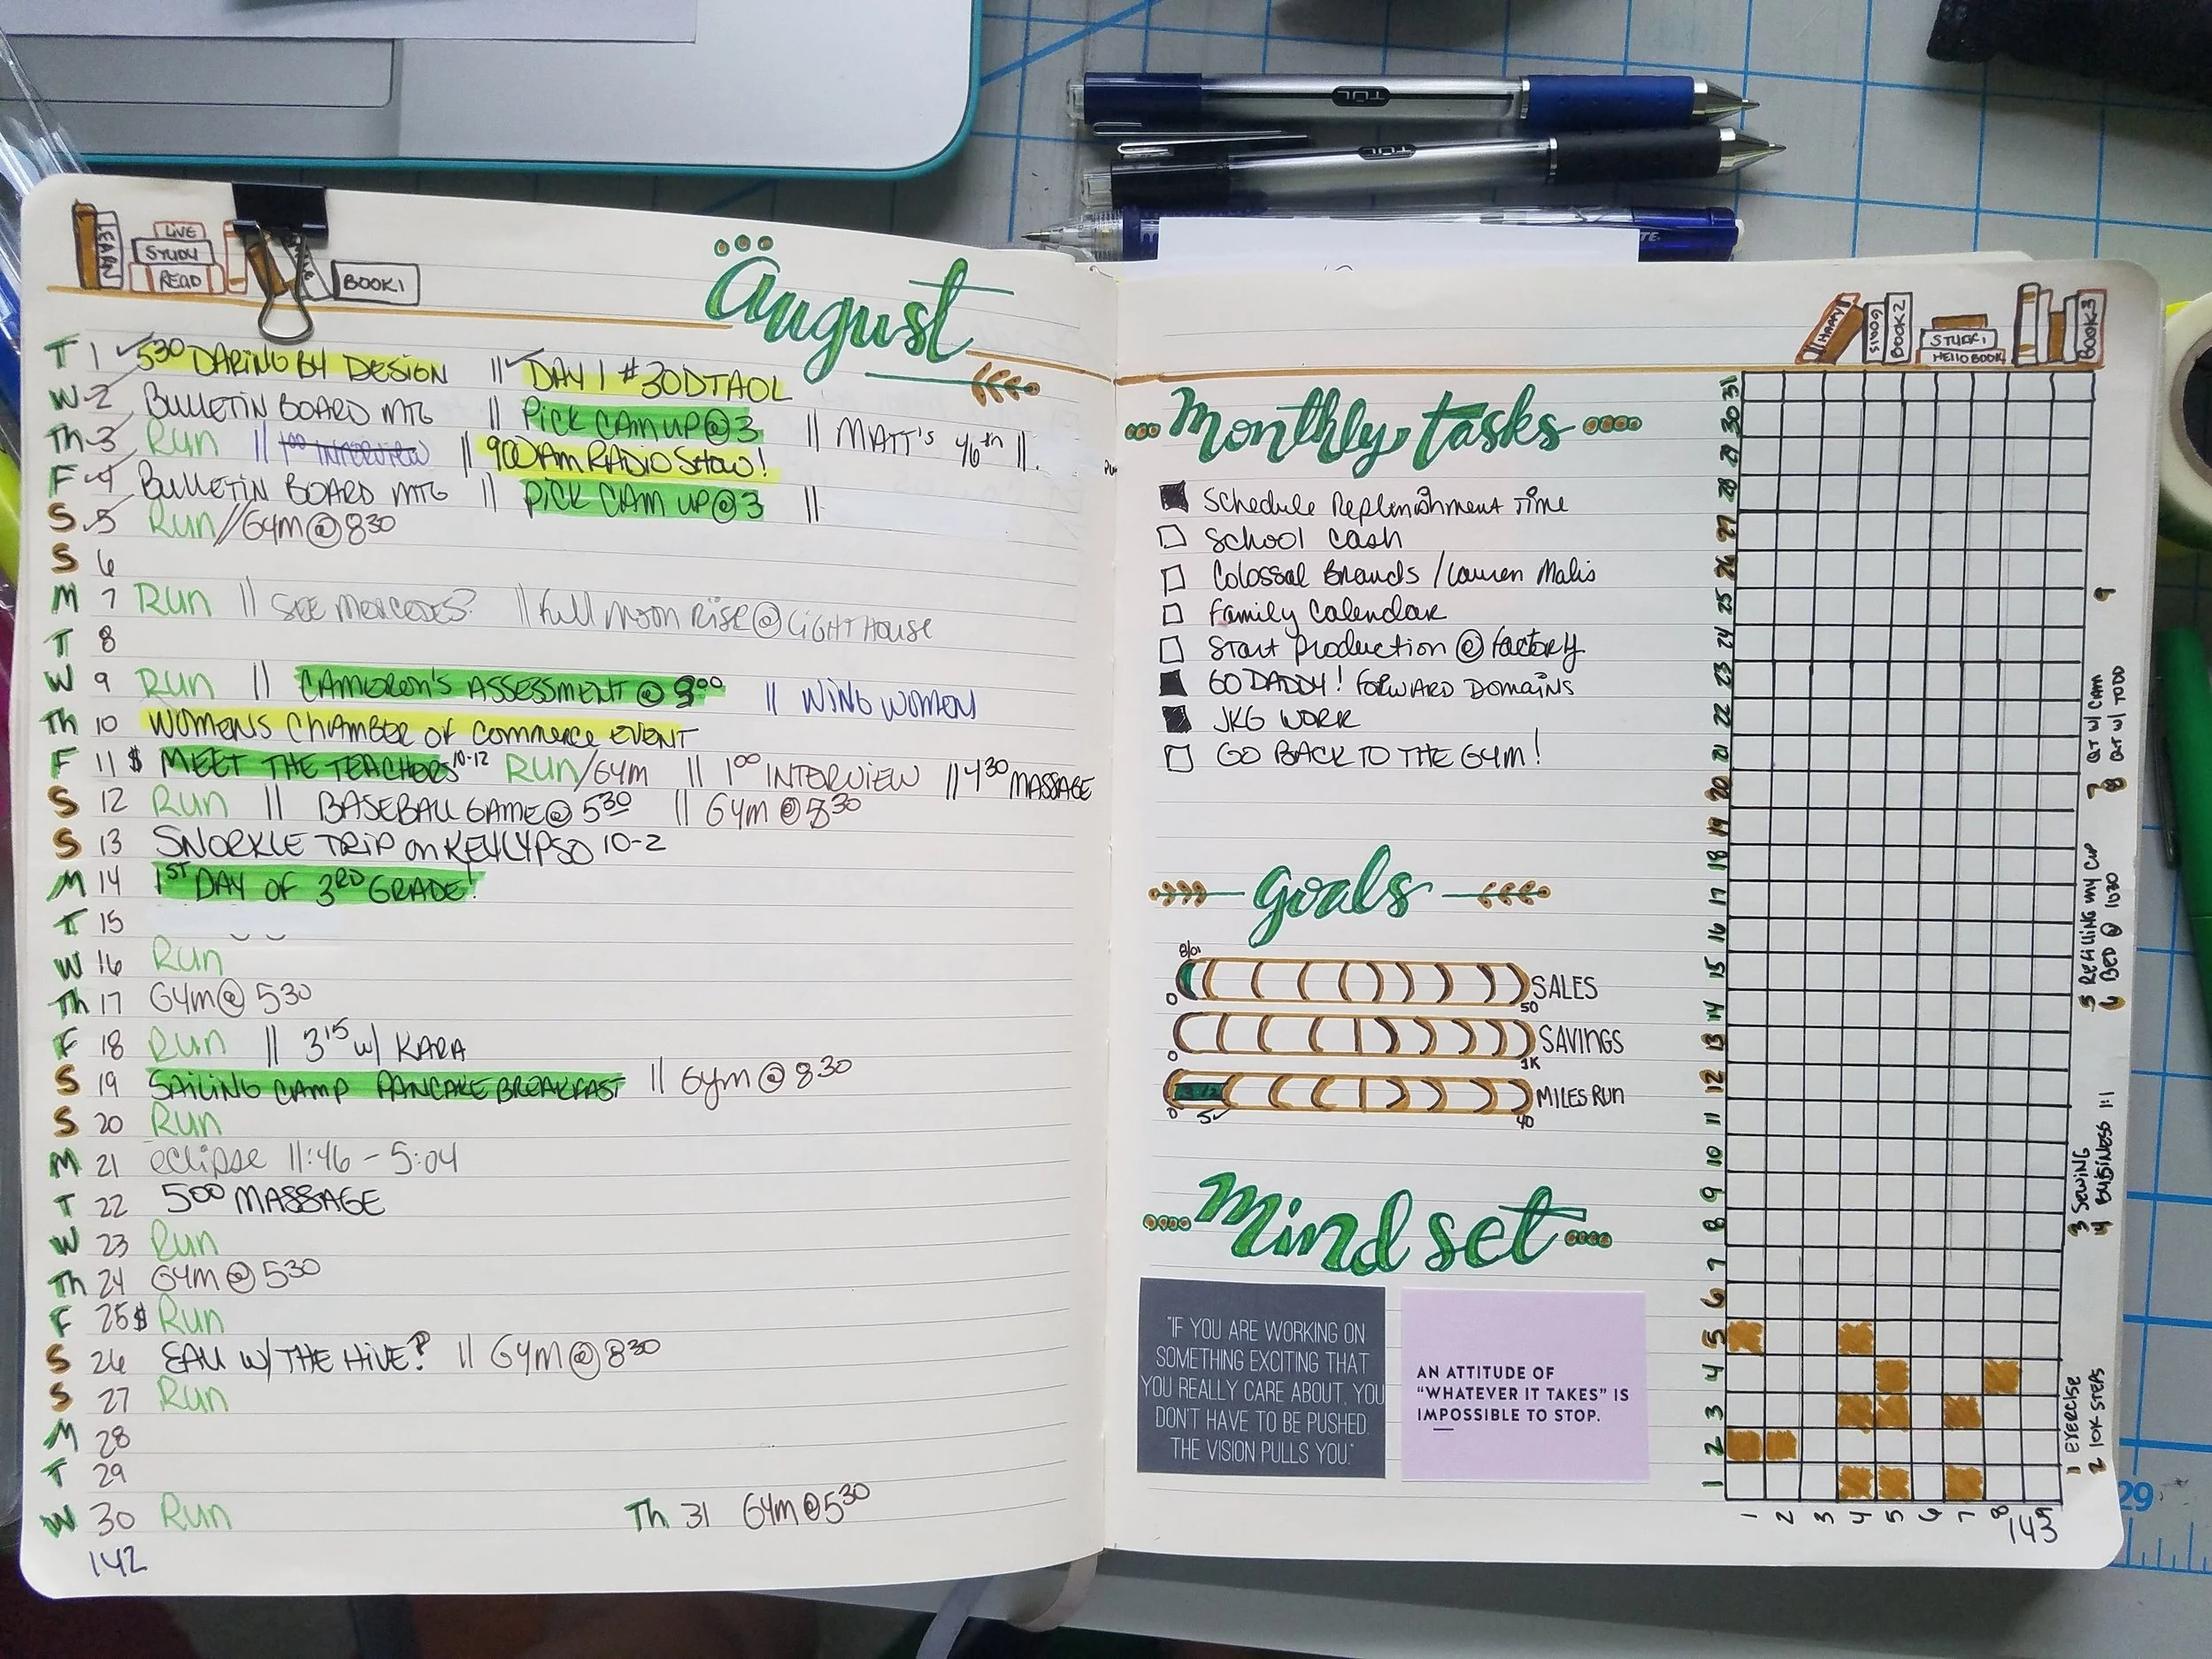 LEARN
LIVE
STUDY
READ
BOOK 1
august
T 1 5³⁰ DARING BY DESIGN || DAY 1 #30DTAOL
W 2 BULLETIN BOARD MTG || PICK CAM UP @ 3 || MATT'S 46th ||
Th 3 Run || 1⁰⁰ INTERVIEW || 900AM RADIO SHOW!
F 4 BULLETIN BOARD MTG || PICK CAM UP @ 3 ||
S 5 Run // GYM @ 8³⁰
S 6
M 7 Run || SEE MERCEDES? || Full Moon Rise @ LIGHTHOUSE
T 8
W 9 Run || CAMERON'S ASSESSMENT @ 9⁰⁰ || WING WOMEN
Th 10 WOMENS CHAMBER OF COMMERCE EVENT
F 11 $ MEET THE TEACHERS 10-12 Run/GYM || 1⁰⁰ INTERVIEW || 4³⁰ MASSAGE
S 12 Run || BASEBALL GAME @ 5³⁰ || GYM @ 8³⁰
S 13 SNORKLE TRIP on KEYLYPSO 10-2
M 14 1ST DAY OF 3RD GRADE!
T 15
W 16 Run
Th 17 GYM @ 530
F 18 Run || 3¹⁵ w/ KARA
S 19 SAILING CAMP PANCAKE BREAKFAST || Gym @ 8³⁰
S 20 Run
M 21 eclipse 11:46 - 5:04
T 22 500 MASSAGE
W 23 Run
Th 24 GYM @ 530
F 25 $ Run
S 26 EAU W/ THE HIVE? || GYM @ 8³⁰
S 27 Run
M 28
T 29
W 30 Run Th 31 GYM @ 5³⁰
142
TUL
TUL
HAPPY
BOOK 2
STUDY
HELLO BOOK
BOOK 3
Monthly tasks
Schedule Replenishment Time
School cash
Colossal Brands / Lauren Malis
Family Calendar
Start production @ factory
GO DADDY! FORWARD DOMAINS
JKG WORK
GO BACK TO THE GYM!
goals
0 50 SALES
0 1K SAVINGS
0 5 40 MILES RUN
Mindset
"IF YOU ARE WORKING ON
SOMETHING EXCITING THAT
YOU REALLY CARE ABOUT, YOU
DON'T HAVE TO BE PUSHED.
THE VISION PULLS YOU."
AN ATTITUDE OF
"WHATEVER IT TAKES" IS
IMPOSSIBLE TO STOP.
31
30
29
28
27
26
25
24
23
22
21
20
19
18
17
16
15
14
13
12
11
10
9
8
7
6
5
4
3
2
1
1 2 3 4 5 6 7 8 9
1 EXERCISE
2 10K STEPS
3 SEWING
4 BUSINESS 1:1
5 REFILLING MY CUP
6 BED @ 1030
7 QT W/ CAM
8 QT W/ TODD
9
143
29